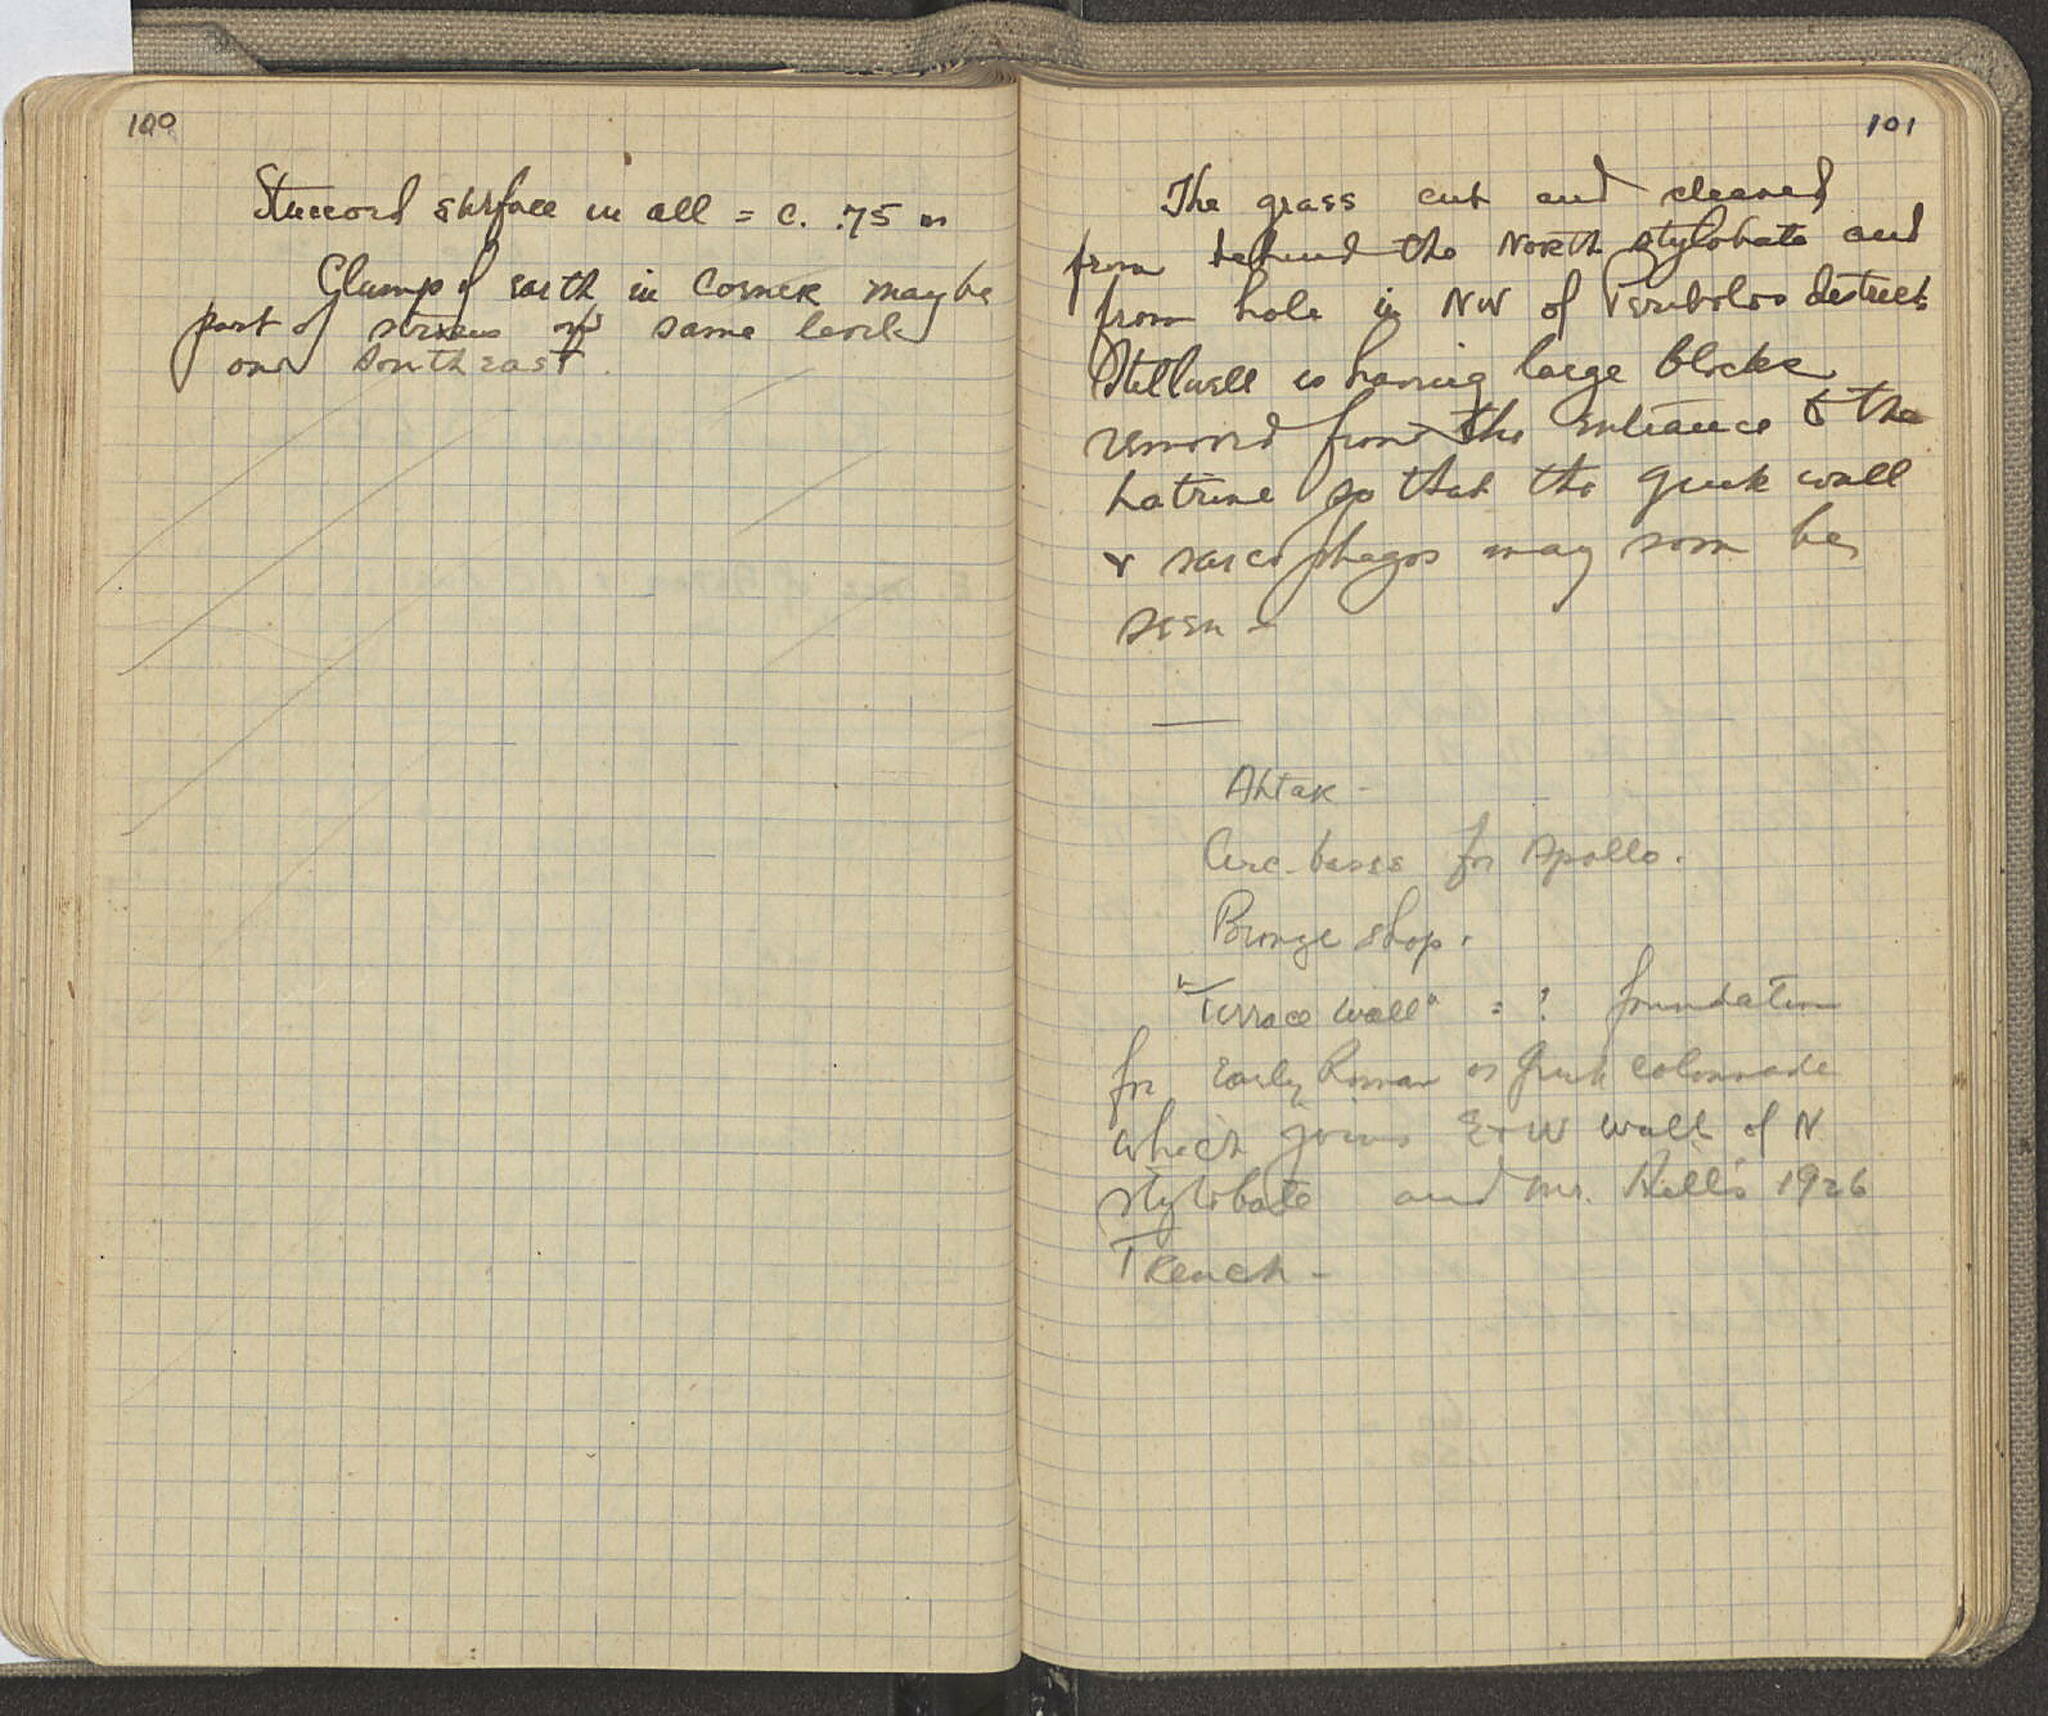 100
Stuccoed surface in all = c. .75 m
Clump of earth in corner may be
part of same level
on southeast.
101
The grass cut and cleaned
from behind the North stylobate and
from hole in NW of Peribolos district
Stillwell is having large blocks
removed from the entrance to the
Latrine so that the Greek wall
& sarcophagos may soon be
seen –
Circ. bases for Apollo.
Bronze shop.
"Terrace wall" = ? foundation
for Early Roman or Greek colonnade
which joins E + W wall of N
stylobate and Mr. Hill's 1926
Trench –